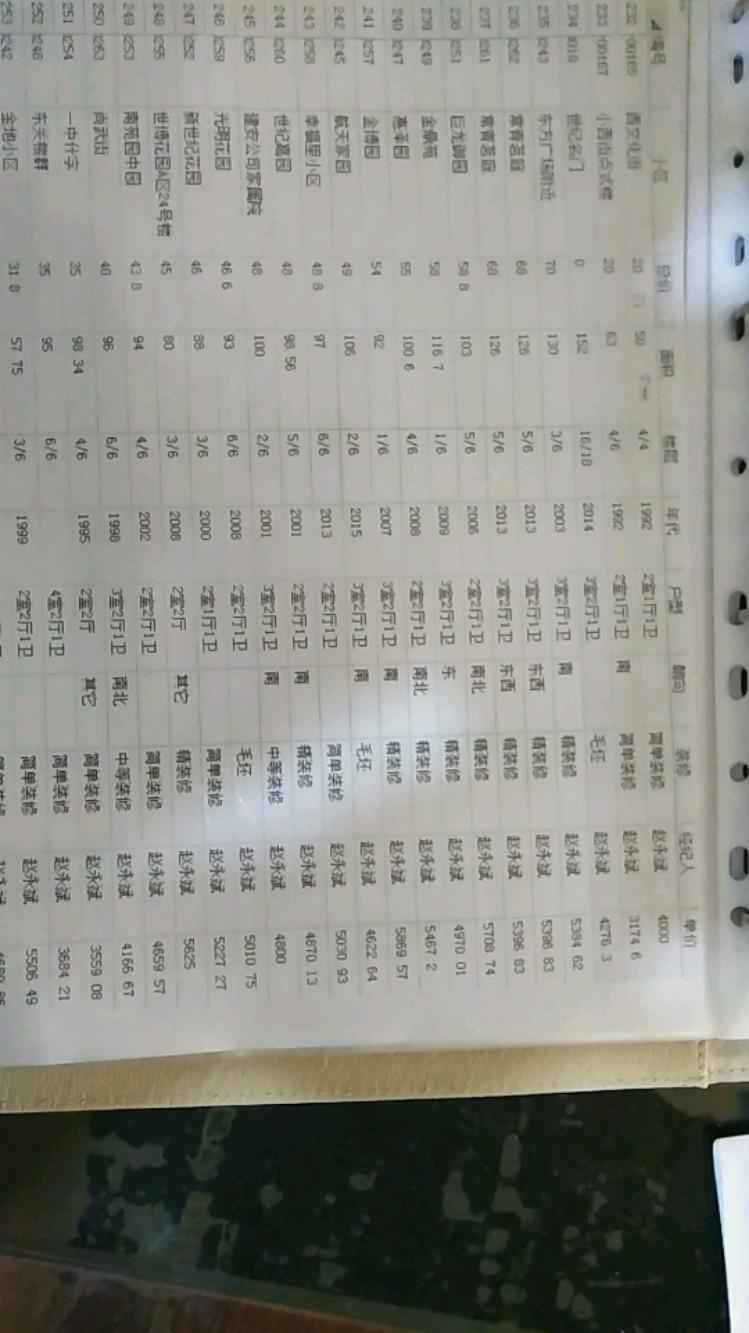 编号 小区 总价 面积 楼层 年代 户型 朝向 装修 经纪人 单价
232 西文化街 20 50 4/4 1992 2室1厅1卫 简单装修 赵永斌 4000
233 小西街点式楼 20 63 4/6 1992 2室1厅1卫 南 简单装修 赵永斌 3174 6
234 世纪名门 0 152 16/18 2014 3室2厅1卫 毛坯 赵永斌 4276 3
235 0243 东方广场附近 70 130 3/6 2003 3室2厅1卫 南 精装修 赵永斌 5384 62
236 0262 常青茗庭 68 126 5/6 2013 3室2厅1卫 东西 精装修 赵永斌 5396 83
237 0261 常青茗庭 68 126 5/6 2013 3室2厅1卫 东西 精装修 赵永斌 5396 83
238 0251 巨龙御园 58 8 103 5/6 2006 2室2厅1卫 南北 精装修 赵永斌 5708 74
239 0249 金鼎苑 58 116 7 1/6 2009 3室2厅1卫 东 精装修 赵永斌 4970 01
240 0247 惠泽园 55 100 6 4/6 2008 2室2厅1卫 南北 精装修 赵永斌 5467 2
241 0257 金博园 54 92 1/6 2007 3室2厅1卫 南 精装修 赵永斌 5869 57
242 0245 航天家园 49 106 2/6 2015 3室2厅1卫 南 毛坯 赵永斌 4622 64
243 0258 幸福里小区 48 8 97 6/6 2013 2室2厅1卫 简单装修 赵永斌 5030 93
244 0260 世纪嘉园 48 98 56 5/6 2001 2室2厅1卫 南 精装修 赵永斌 4870 13
245 0256 建安公司家属院 48 100 2/6 2001 3室2厅1卫 南 中等装修 赵永斌 4800
246 0259 光明花园 46 6 93 6/6 2008 2室2厅1卫 毛坯 赵永斌 5010 75
247 0252 新世纪花园 46 88 3/6 2000 2室1厅1卫 简单装修 赵永斌 5227 27
248 0255 世博花园A区24号楼 45 80 3/6 2008 2室2厅 其它 精装修 赵永斌 5625
249 0253 南苑园中园 43 8 94 4/6 2002 2室2厅1卫 简单装修 赵永斌 4659 57
250 0263 尚武街 40 96 6/6 1998 3室2厅1卫 南北 中等装修 赵永斌 4166 67
251 0254 一中什字 35 98 34 4/6 1995 2室2厅 其它 简单装修 赵永斌 3559 08
252 0246 东关楼群 35 95 6/6 4室2厅1卫 简单装修 赵永斌 3684 21
253 0242 金地小区 31 8 57 75 3/6 1999 2室2厅1卫 简单装修 赵永斌 5506 49